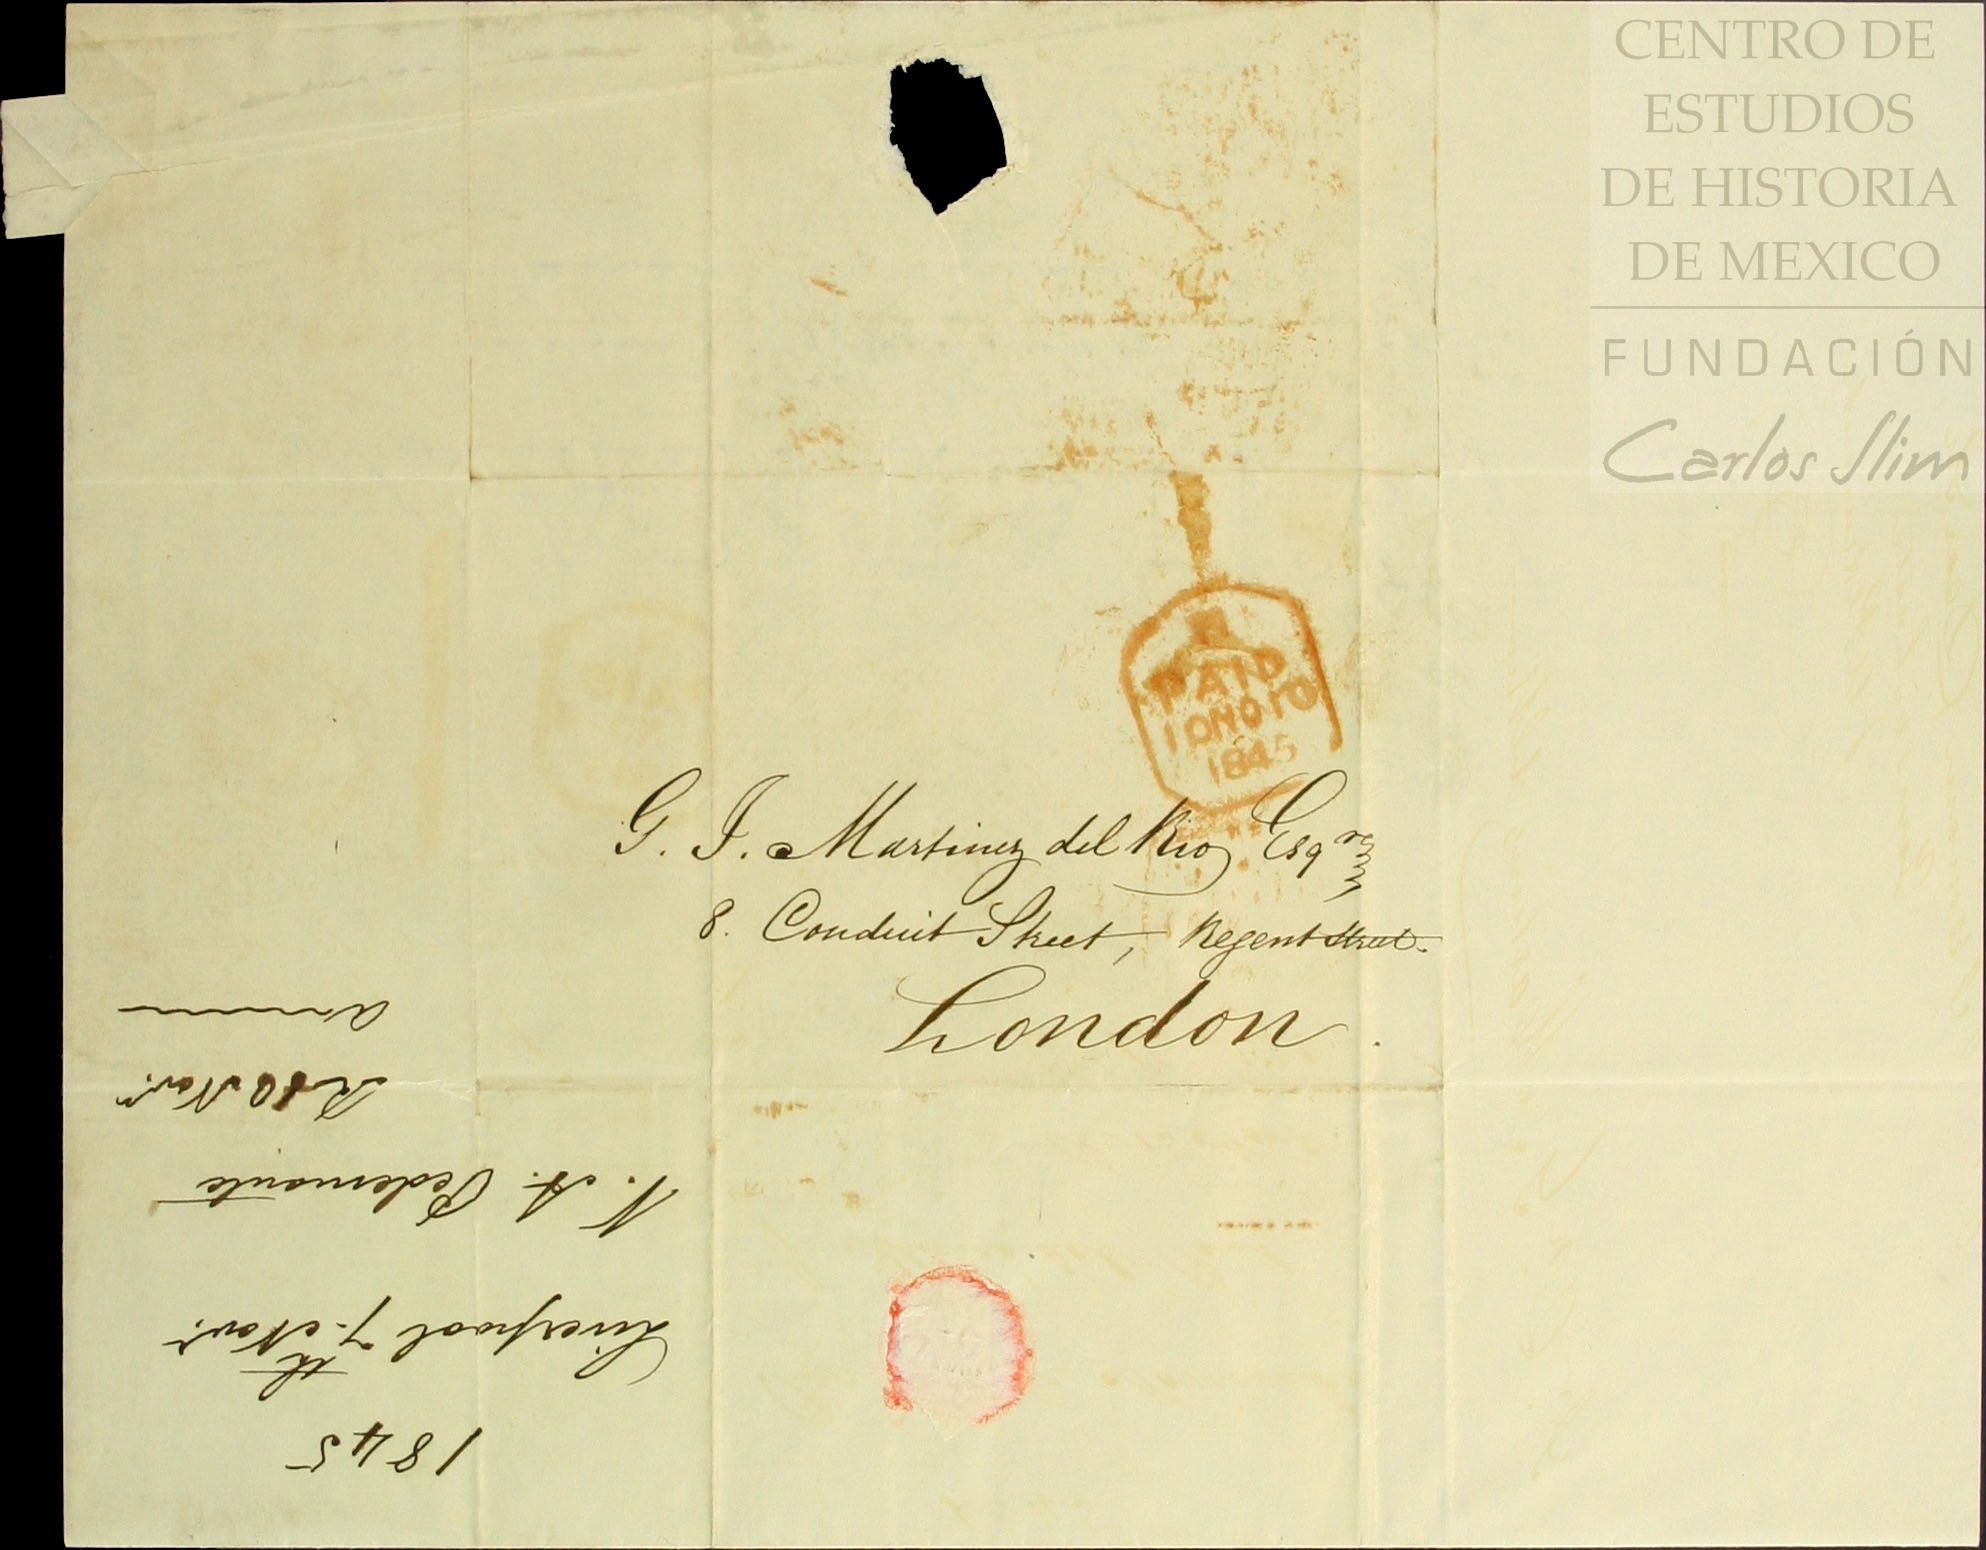 CENTRO DE
ESTUDIOS
DE HISTORIA
DE MEXICO
FUNDACIÓN
Carlos Slim
PAID
10 NO 10
1845
G. J. Martinez del Rio Esqre
8. Conduit Street, Regent Street.
London.
1845
Liverpool 7th Novr
N. A. Pedemonte
R 10 Novr